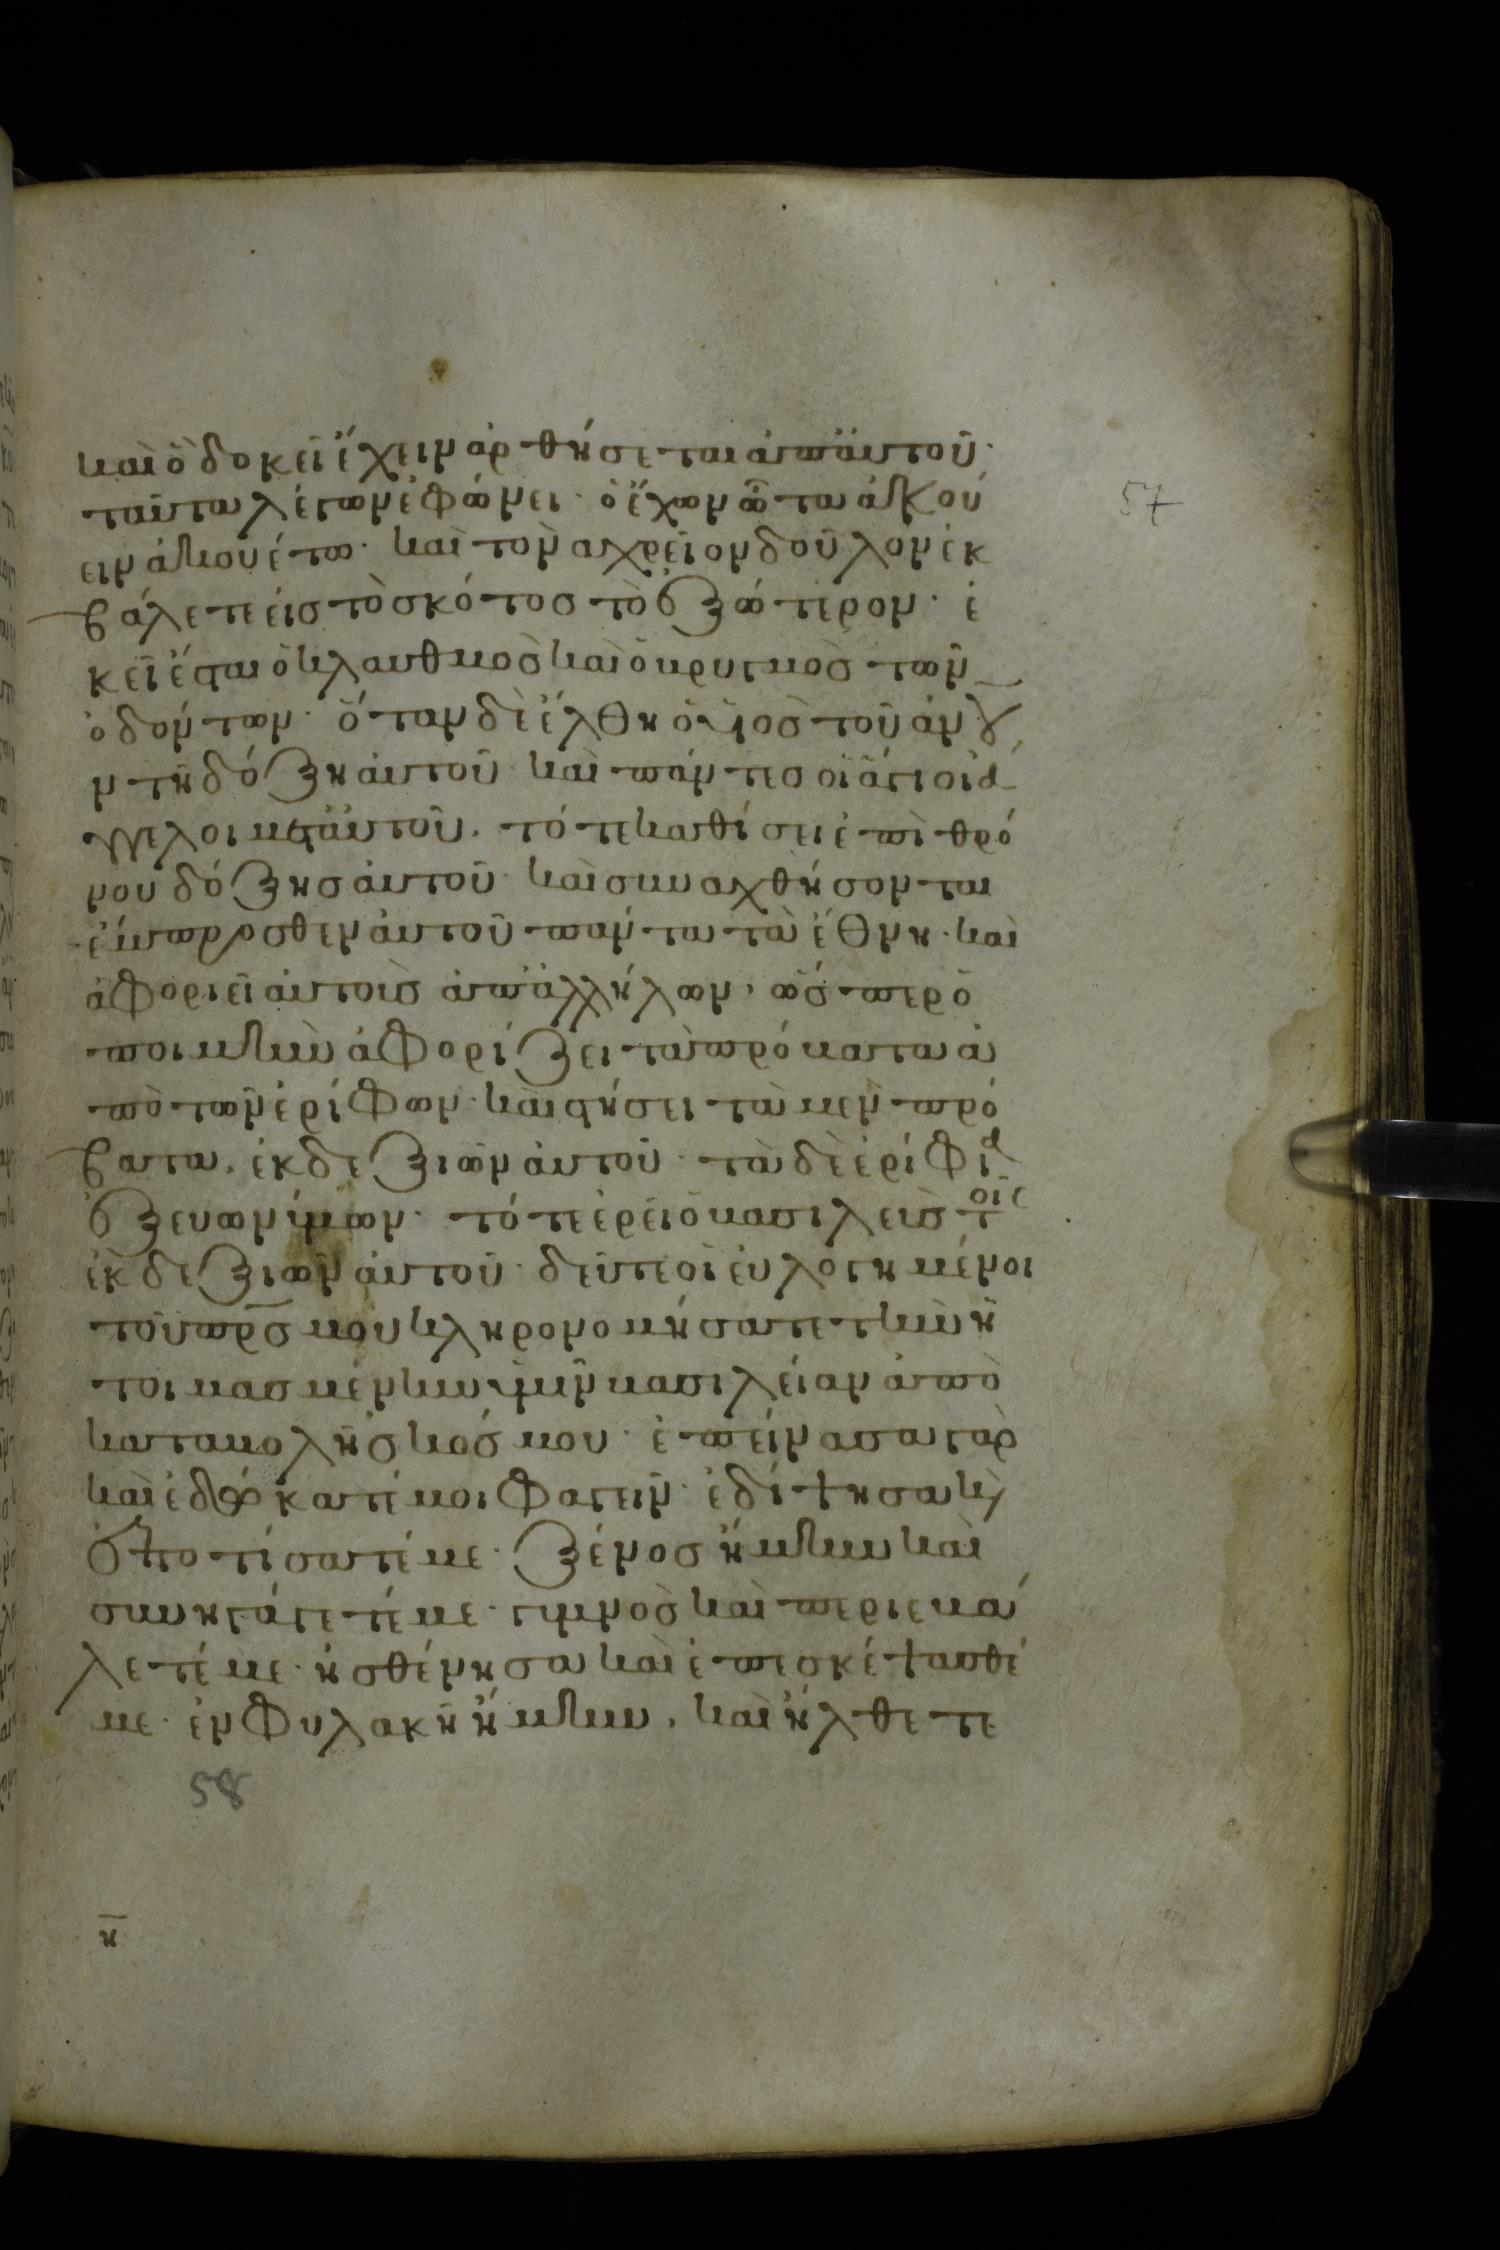 καὶ ὃ δοκεῖ ἔχειν ἀρθήσεται ἀπ' αὐτοῦ·
ταῦτα λέγων ἐφώνει· ὁ ἔχων ὦτα ἀκού
ειν ἀκουέτω· καὶ τὸν ἀχρεῖον δοῦλον ἐκ
βάλετε εἰς τὸ σκότος τὸ ἐξώτερον· ἐ
κεῖ ἔσται ὁ κλαυθμὸς καὶ ὁ βρυγμὸς τῶν
ὀδόντων· ὅταν δὲ ἔλθη ὁ υἱὸς τοῦ ἀνου ἐ
ν τῆ δόξη αὐτοῦ καὶ πάντες οἱ ἅγιοι ἄ
γγελοι μετ' αὐτοῦ, τότε καθίσει ἐπὶ θρό
νου δόξης αὐτοῦ· καὶ συναχθήσονται
ἔμπροσθεν αὐτοῦ πάντα τὰ ἔθνη· καὶ
ἀφοριεῖ αὐτοὺς ἀπ' ἀλλήλων, ὥσπερ ὁ
ποιμὴν ἀφορίζει τὰ πρόβατα ἀ
πὸ τῶν ἐρίφων· καὶ στήσει τὰ μὲν πρό
βατα, ἐκ δεξιῶν αὐτοῦ· τὰ δὲ ἐρίφια
ἐξ εὐωνύμων· τότε ἐρεῖ ὁ βασιλεὺς τοῖς
ἐκ δεξιῶν αὐτοῦ· δεῦτε οἱ εὐλογημένοι
τοῦ πρς μου κληρονομήσατε τὴν ἡ
τοιμασμένην ὑμῖν βασιλείαν ἀπὸ
καταβολῆς κόσμου· ἐπείνασα γὰρ
καὶ ἐδώκατέ μοι φαγεῖν· ἐδίψησα κὶ
ἐποτίσατέ με· ξένος ἤμην καὶ
συνηγάγετέ με· γυμνὸς καὶ περιεβά
λετέ με· ἠσθένησα καὶ ἐπεσκέψασθέ
με· ἐν φυλακῆ ἤμην, καὶ ἤλθετε
57
58
η